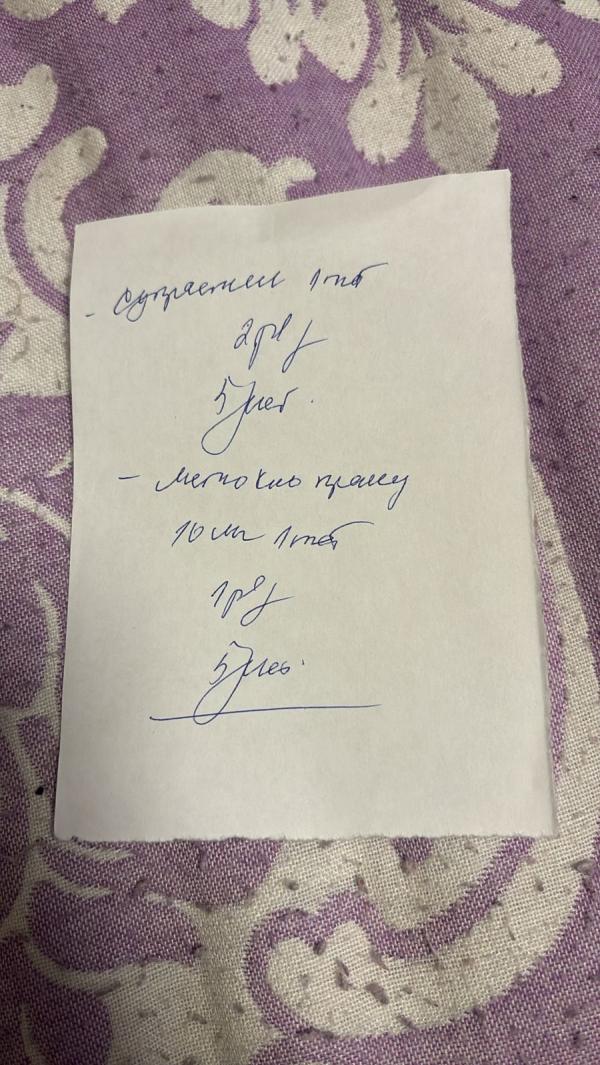 - Супрастин 1 таб
2 р/д
5 дней.
- Метоклопрамид
10 мг 1 таб
1 р/д
5 дней.